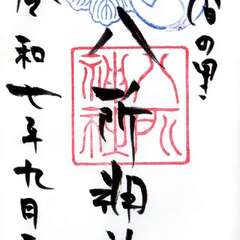 舂の里
八所神社
八所神社
令和七年九月